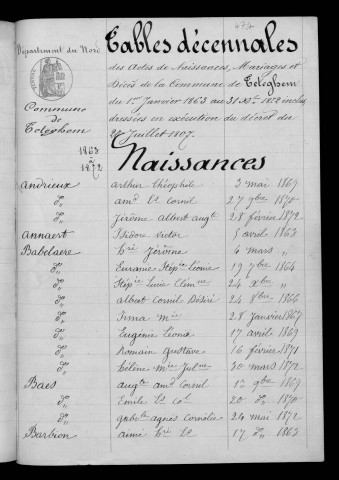 Département du Nord
Tables décennales
des Actes de Naissances, Mariages et
Décès de la Commune de Téteghem
du 1er Janvier 1863 au 31 Xbre 1872 inclus
dressées en exécution du décret du
20 Juillet 1807.
Commune
de
Téteghem
1863
à
1872
Naissances
Andrieux arthur théophile 3 mai 1869
d° amd Ls Cornil 27 9bre 1870
d° Jérôme albert augte 28 février 1872
Annaert Isidore victor 5 avril 1863
Babelaere hri Jérôme 4 mars "
d° Euranie Stépie Léonie 19 7bre 1864
d° Stépie Louis Clémne 24 Xbre "
d° albert Cornil Désiré 24 8bre 1866
d° Irma mie 28 janvier 1867
d° Eugénie Léonie 17 avril 1869
d° Romain gustave 16 février 1871
d° hélène mie Julne 30 mars 1872
Baes augte amd Cornil 12 9bre 1869
d° Emile Ls 20 d° 1870
d° agnès Cornélie 24 mai 1872
Barbion aimé hri Ls 17 d° 1863